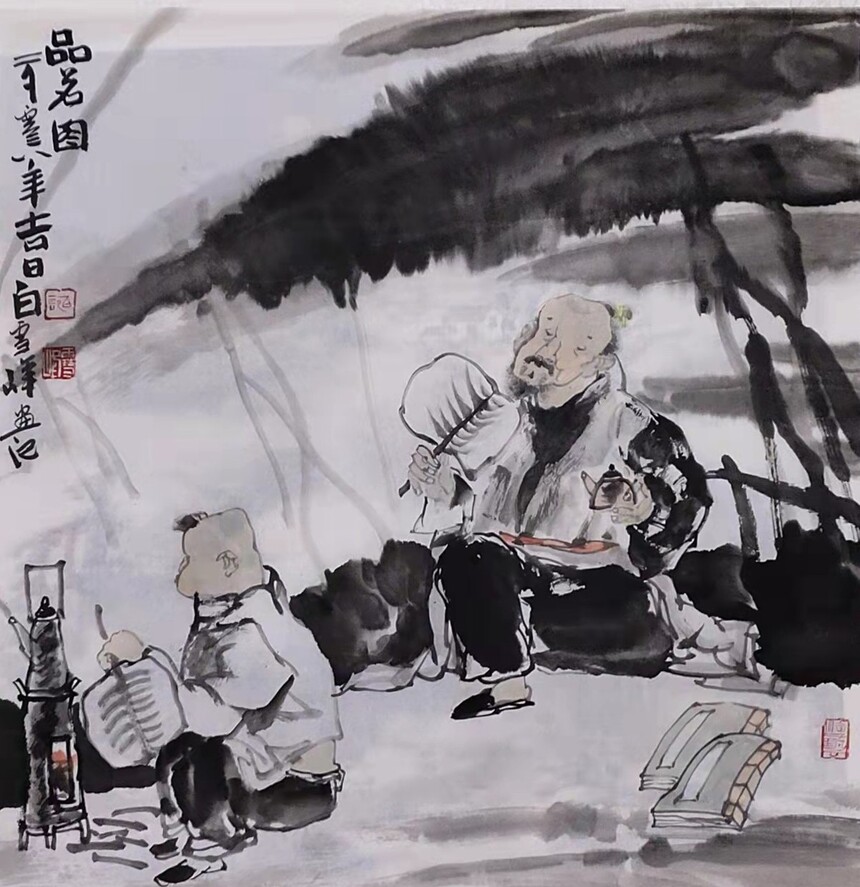 品茗图
二千零八年吉日白雪峰画记